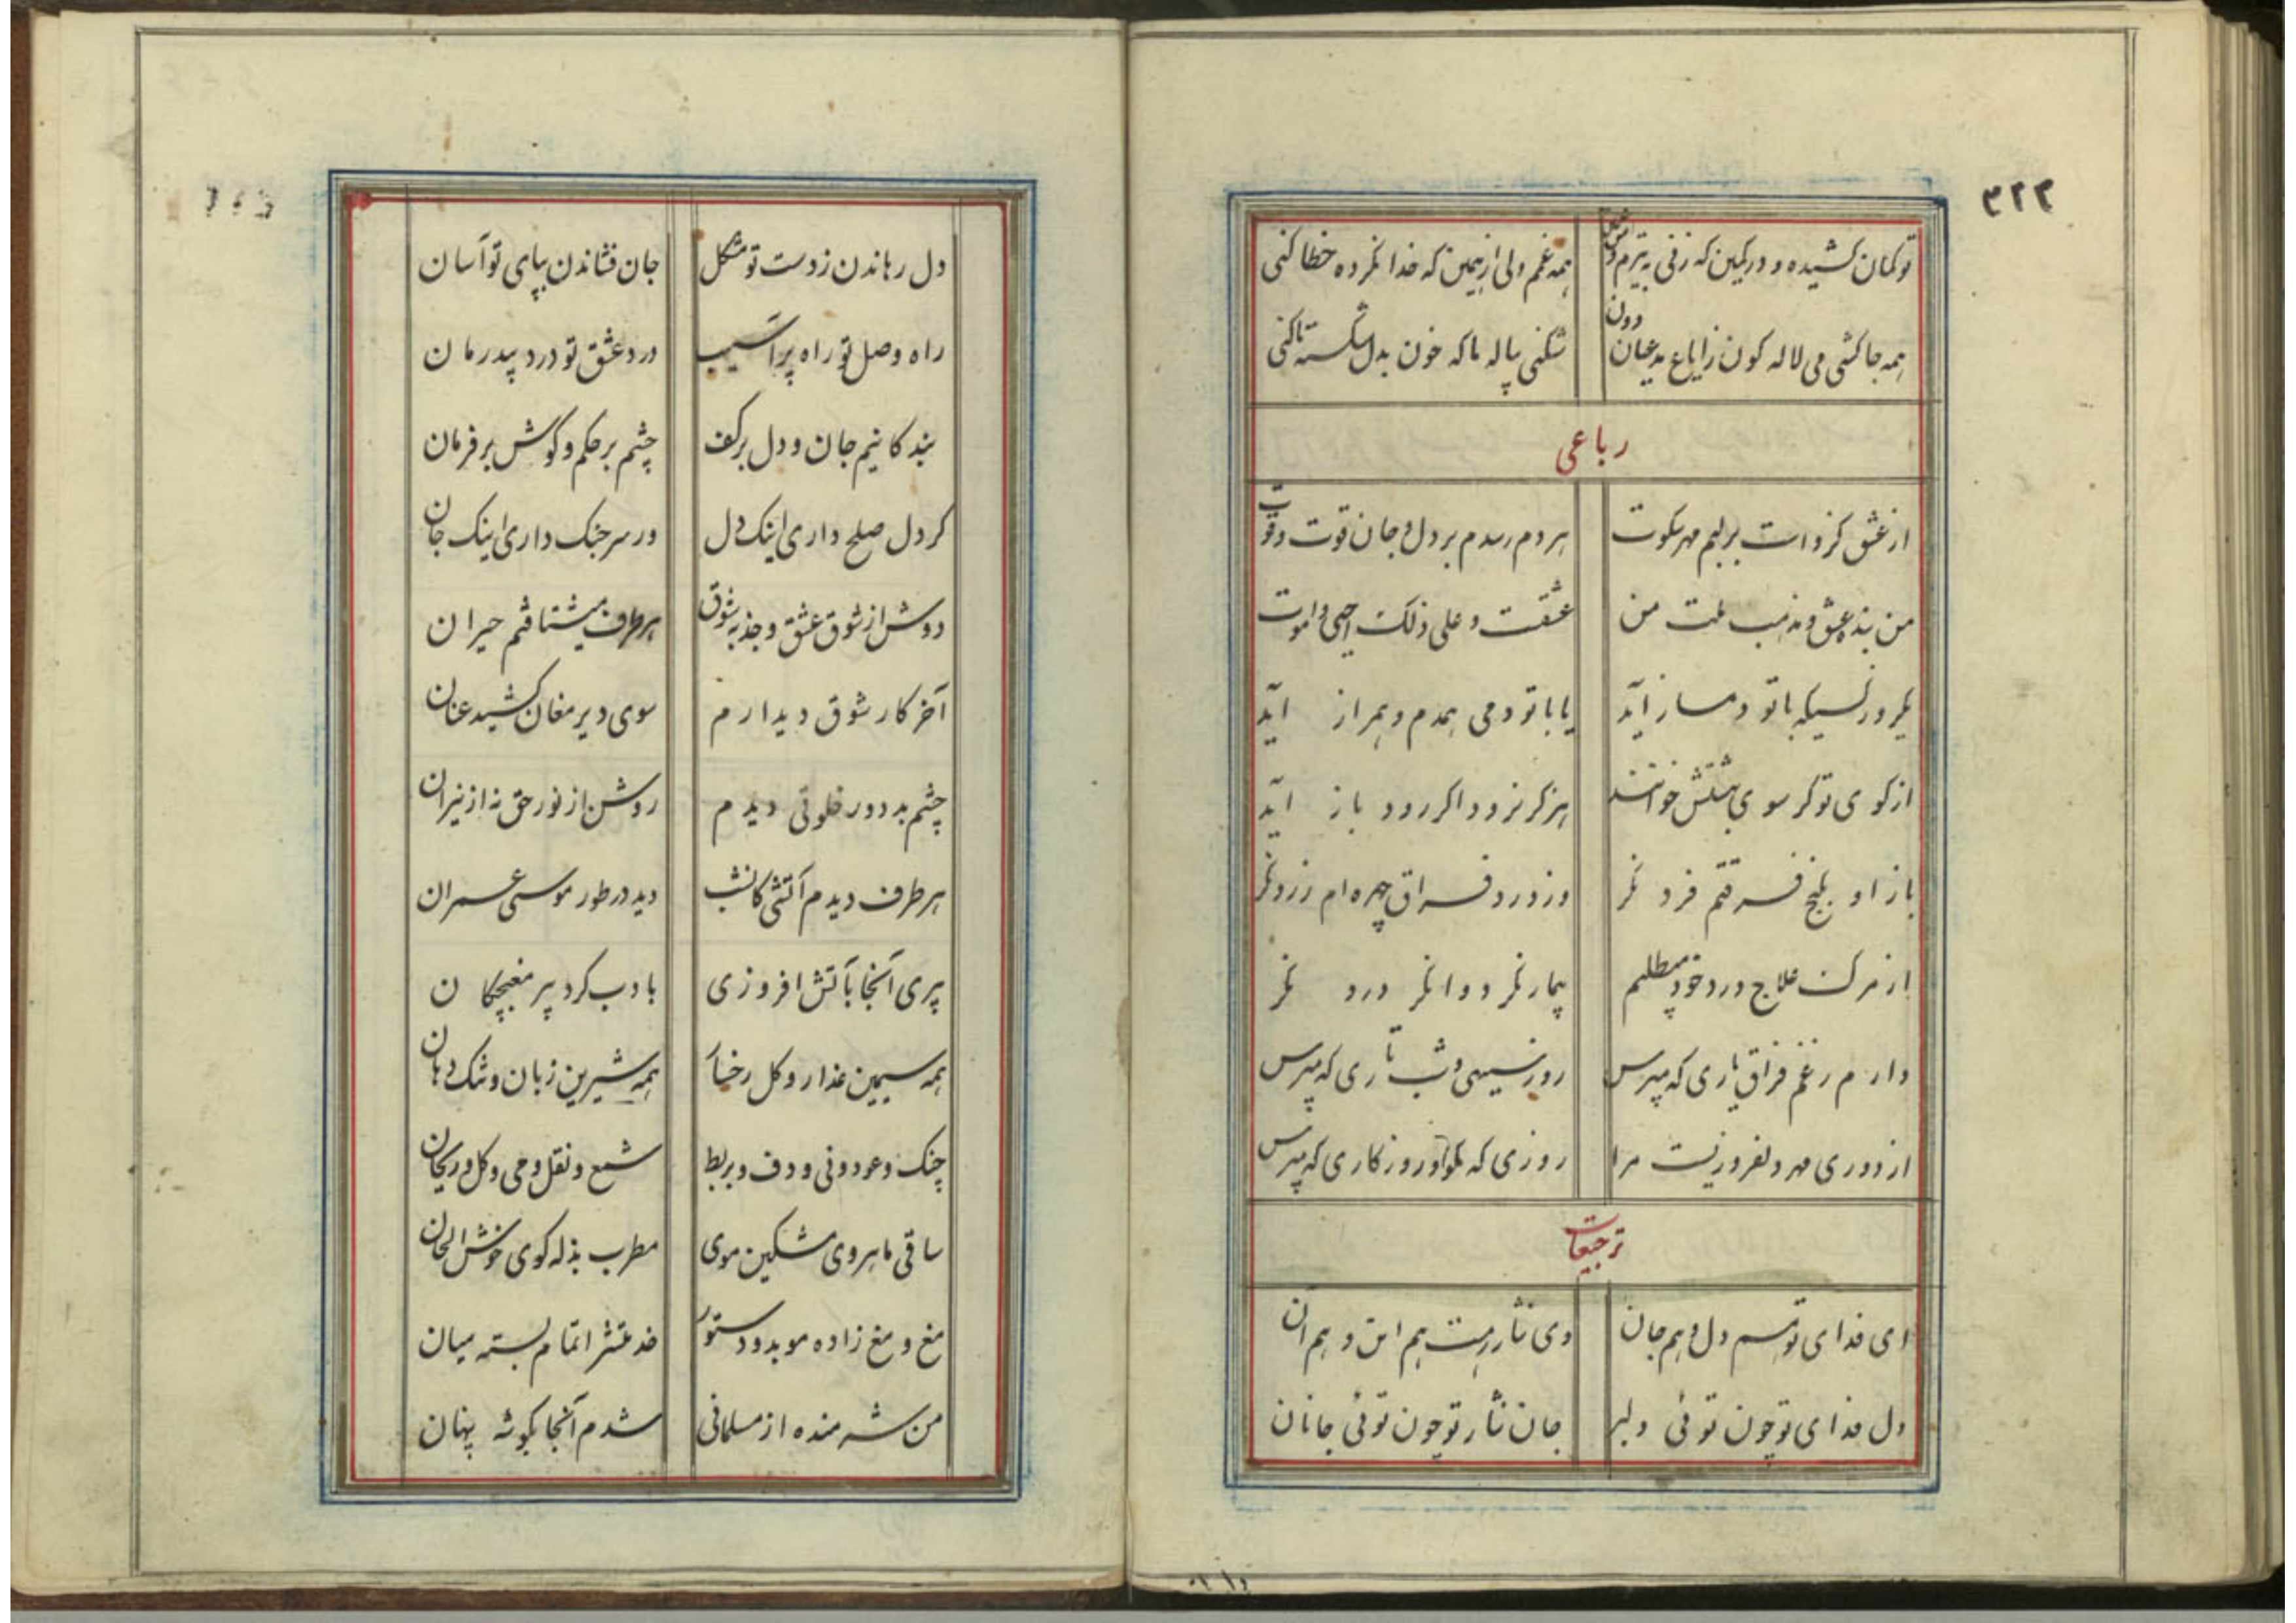 ۳۲۲
تو کمان کشیده و در کمین که زنی به تیرم و من غمین
همه غمم ولی از همین که خدا نکرده خطا کنی
همه جا کشی می لاله کون زایاغ مدعیان دون
شکنی پیاله ما که خون بدل شکسته ما کنی
رباعی
از عشق کزو است بر لبم مهر سکوت
هر دم رسدم بر دل و جان قوت و قوت
من بنده عشق و مذهب ملت من
عشقست و علی ذلک احیی و اموت
یکروز کسیکه با تو دمساز آید
یا با تو دمی همدم و همراز آید
از کوی تو کر سوی بهشتش خوانند
هرکز نرود اکر رود باز آید
باز او بکنج فرقتم فرد نکر
وز درد فراق چهره ام زرد نکر
از مرک علاج درد خود میطلبم
بیمار نکر دوا نکر درد نکر
دارم ز غم فراق یاری که مپرس
روز سیهی و شب تاری که مپرس
از دوری مهر دلفروزیست مرا
روزی که مکو و روزکاری که مپرس
ترجیعات
ای فدای تو هم دل و هم جان
وی نثار رهت هم این و هم آن
دل فدای تو چون توئی دلبر
جان نثار تو چون توئی جانان
دل رهاندن ز دست تو مشکل
جان فشاندن بپای تو آسان
راه وصل تو راه پر آسیب
درد عشق تو درد بیدرمان
بندکانیم جان و دل بر کف
چشم بر حکم و کوش بر فرمان
کر دل صلح داری اینک دل
ور سر جنک داری اینک جان
دوش از شوق عشق و جذبه شوق
هر طرف میشتافتم حیران
آخر کار شوق دیدارم
سوی دیر مغان کشید عنان
چشم بد دور خلوتی دیدم
روشن از نور حق نه از نیران
هر طرف دیدم آتشی کانشب
دید در طور موسی عمران
پیری آنجا بآتش افروزی
بادب کرد پیر مغبچکان
همه سیمین عذار و کل رخسار
همه شیرین زبان و تنک دهان
چنک و عود و نی و دف و بربط
شمع و نقل و می و کل و ریحان
ساقی ماهروی مشکین موی
مطرب بذله کوی خوش الحان
مغ و مغ زاده موبد و دستور
خدمتش را تمام بسته میان
من شرمنده از مسلمانی
شدم آنجا بکوشه پنهان